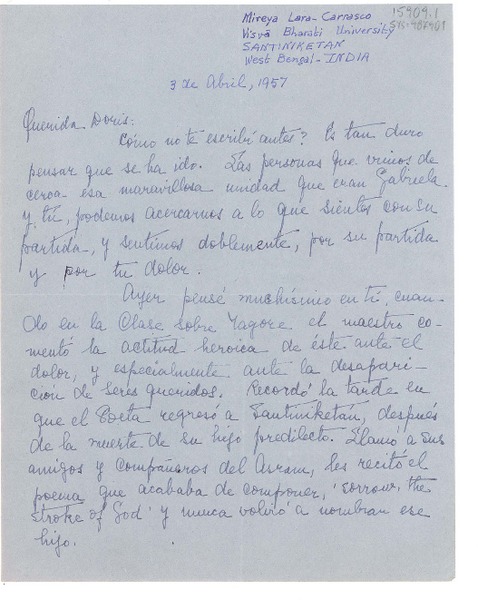 Mireya Lara-Carrasco
Visvā Bharati University
SANTINIKETAN
West Bengal-INDIA
15909.1
3 de Abril, 1957
Querida Doris:
Cómo no te escribí antes? Es tan duro
pensar que se ha ido. Las personas que vimos de
cerca esa maravillosa unidad que eran Gabriela
y tú, podemos acercarnos a lo que sientes con su
partida, y sentimos doblemente, por su partida
y por tu dolor.
Ayer pensé muchísimo en tí, cuan-
do en la Clase sobre Tagore el maestro co-
mentó la actitud heroica de éste ante el
dolor, y especialmente ante la desapari-
ción de seres queridos. Recordó la tarde en
que el Poeta regresó a Santiniketan, después
de la muerte de su hijo predilecto. Llamó a sus
amigos y compañeros del Asram, les recitó el
poema que acababa de componer, 'sorrow, the
stroke of God' y nunca volvió a nombrar ese
hijo.